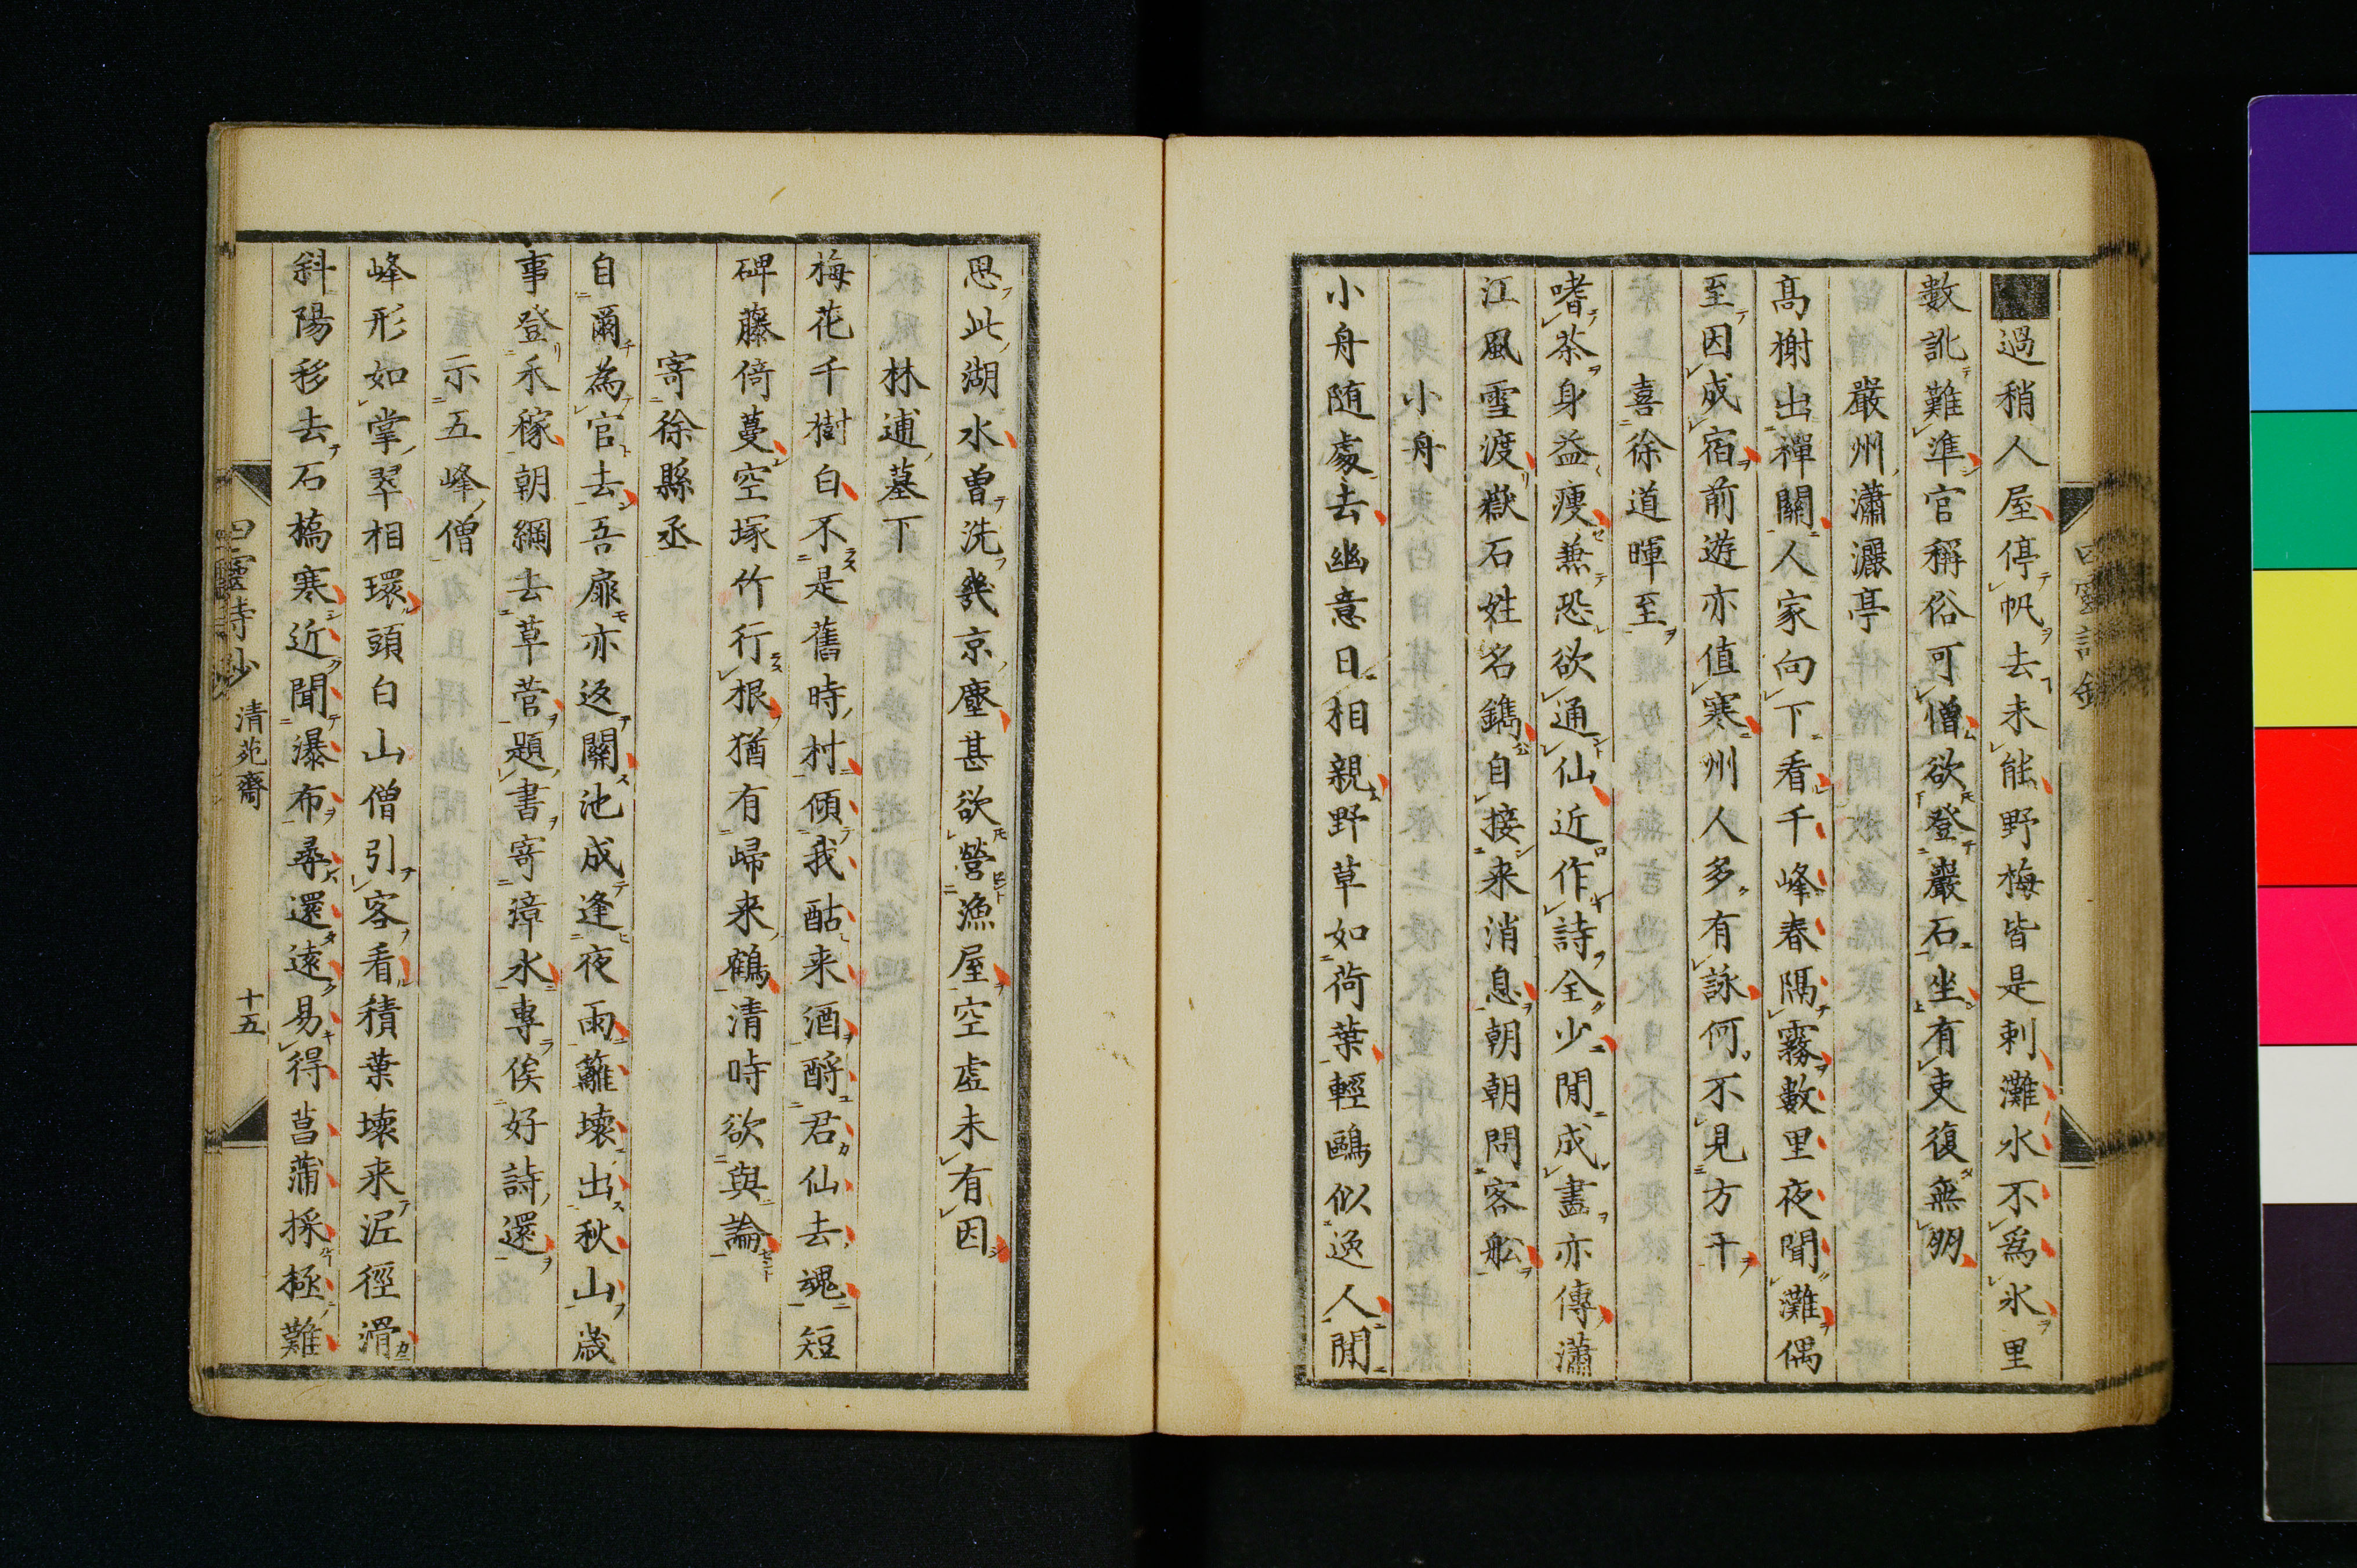 過稍人屋停帆去未能野梅皆是刺灘水不為氷里
數訛難準官稱俗可憎欲登巖石坐有吏復無朋
嚴州瀟灑亭
髙榭出禪關人家向下看千峰春隔霧數里夜聞灘偶
至因成宿前遊亦值寒州人多有詠何不見方干
喜徐道暉至
嗜茶身益瘦兼恐欲通仙近作詩全少閒成畫亦傳瀟
江風雪渡嶽石姓名鐫自接来消息朝朝問客舩
小舟
小舟随處去幽意日相親野草如荷葉輕鷗似逸人閒
思此湖水曽洗幾京塵甚欲營漁屋空虛未有因
林逋墓下
梅花千樹白不是舊時村傾我酤来酒酹君仙去魂短
碑藤倚蔓空塚竹行根猶有㱕来鶴清時欲與論
寄徐縣丞
自爾為官去吾扉亦返關池成逢夜雨籬壊出秋山歳
事登禾稼朝綱去草菅題書寄漳水專俟好詩還
示五峰僧
峰形如掌翠相環頭白山僧引客看積葉壊来泥徑滑
斜陽移去石橋寒近聞瀑布尋還遠易得菖蒲採極難
四靈詩抄 清苑齋 十五